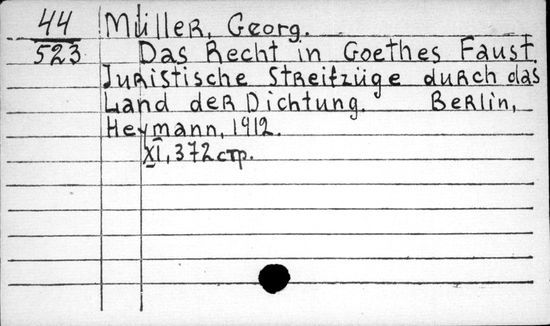 44
523
Müller, Georg.
Das Recht in Goethes Faust.
Juristische Streifzüge durch das
Land der Dichtung. Berlin,
Heymann, 1912.
XI, 372 стр.